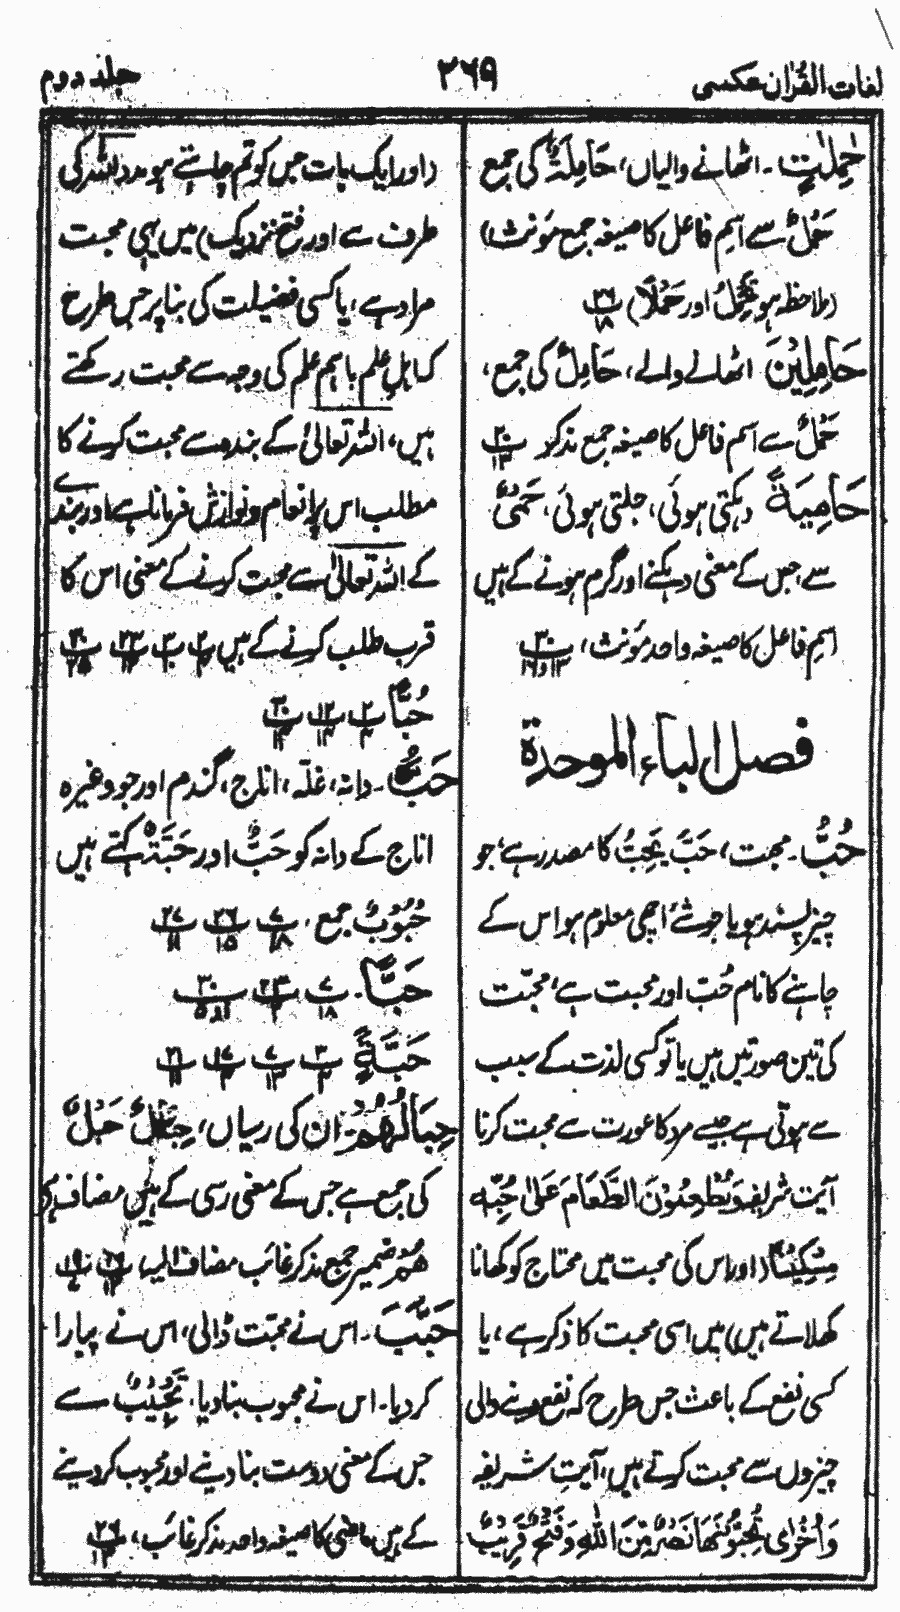 لغات القرآن عکسی
۲۶۹
جلد دوم
حٰمِلٰتٍ۔ اٹھانے والیاں، حَامِلَةٌ کی جمع
حَمْلٌ سے اسم فاعل کا صیغہ جمع مؤنث)
(ملاحظہ ہو یَحْمِلُ اور حَمْلًا) ۲۶/۱۸
حَامِلِیْنَ اٹھانے والے، حَامِلٌ کی جمع،
حَمْلٌ سے اسم فاعل کا صیغہ جمع مذکر ۲۰/۱۳
حَامِیَةٌ دہکتی ہوئی، جلتی ہوئی، حَمْیٌ
سے، جس کے معنی دہکنے اور گرم ہونے کے ہیں
اسم فاعل کا صیغہ واحد مؤنث، ۳۰/۱۳ و ۲۶
فصل الباء الموحدة
حُبٌّ۔ محبت، حَبَّ یَحِبُّ کا مصدر ہے، جو
چیز پسند ہو یا جو شئے اچھی معلوم ہو اس کے
چاہنے کا نام حُبّ اور محبت ہے، محبّت
کی تین صورتیں ہیں یا تو کسی لذت کے سبب
سے ہوتی ہے جیسے مرد کا عورت سے محبت کرنا
آیت شریفہ وَیُطْعِمُوْنَ الطَّعَامَ عَلٰی حُبِّهٖ
مِسْكِیْنًا (اور اس کی محبت میں محتاج کو کھانا
کھلاتے ہیں) میں اسی محبت کا ذکر ہے، یا
کسی نفع کے باعث جس طرح کہ نفع دینے والی
چیزوں سے محبت کرتے ہیں، آیتِ شریفہ
وَاُخْرٰی تُحِبُّوْنَهَا نَصْرٌ مِّنَ اللّٰهِ وَفَتْحٌ قَرِیْبٌ
(اور ایک بات جس کو تم چاہتے ہو مدد اللہ کی
طرف سے اور فتح نزدیک) میں یہی محبت
مراد ہے، یا کسی فضیلت کی بنا پر جس طرح
کہ اہلِ علم باہم علم کی وجہ سے محبت رکھتے
ہیں، اللہ تعالیٰ کے بندہ سے محبت کرنے کا
مطلب اس پر انعام و نوازش فرمانا ہے اور بندے
کے اللہ تعالیٰ سے محبت کرنے کے معنی اس کا
قرب طلب کرنے کے ہیں
حُبًّا
حَبٌّ۔ دانہ، غلّہ، اناج، گندم اور جو وغیرہ
اناج کے دانہ کو حَبٌّ اور حَبَّةٌ کہتے ہیں
حُبُوْبٌ جمع، ۷/۱۸ ۲۶/۱۵ ۲۷/۱۱
حَبًّا۔
حَبَّةٍ
حِبَالُهُمْ۔ ان کی رسیاں، حِبَالٌ، حَبْلٌ
کی جمع ہے جس کے معنی رسی کے ہیں مضاف ہے
هُمْ ضمیر جمع مذکر غائب مضاف الیہ،
حَبَّبَ۔ اس نے محبّت ڈالی، اس نے پیارا
کر دیا۔ اس نے محبوب بنا دیا، تَحْبِیْبٌ سے
جس کے معنی دوست بنا دینے اور محبوب کر دینے
کے ہیں ماضی کا صیغہ واحد مذکر غائب، ۲۶/۱۳